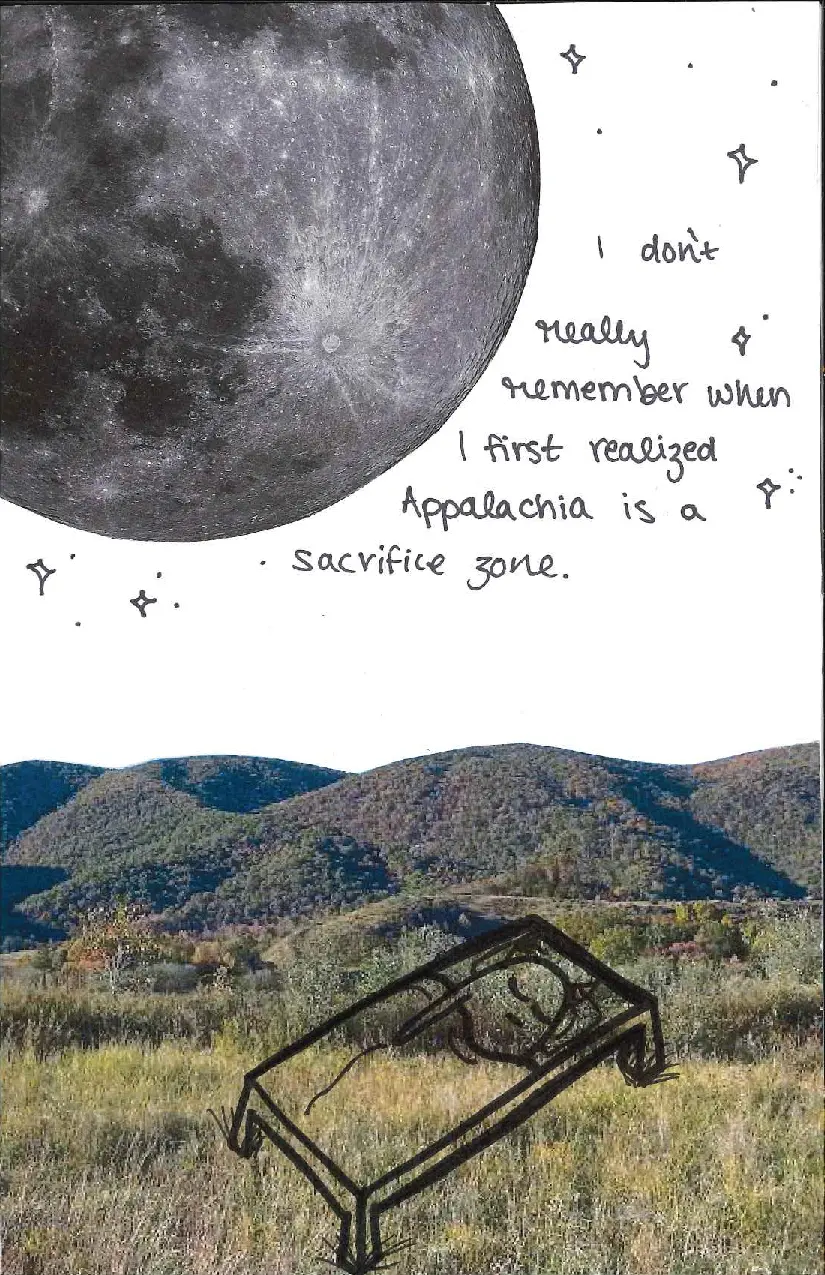 I don't
really
remember when
I first realized
Appalachia is a
sacrifice zone.